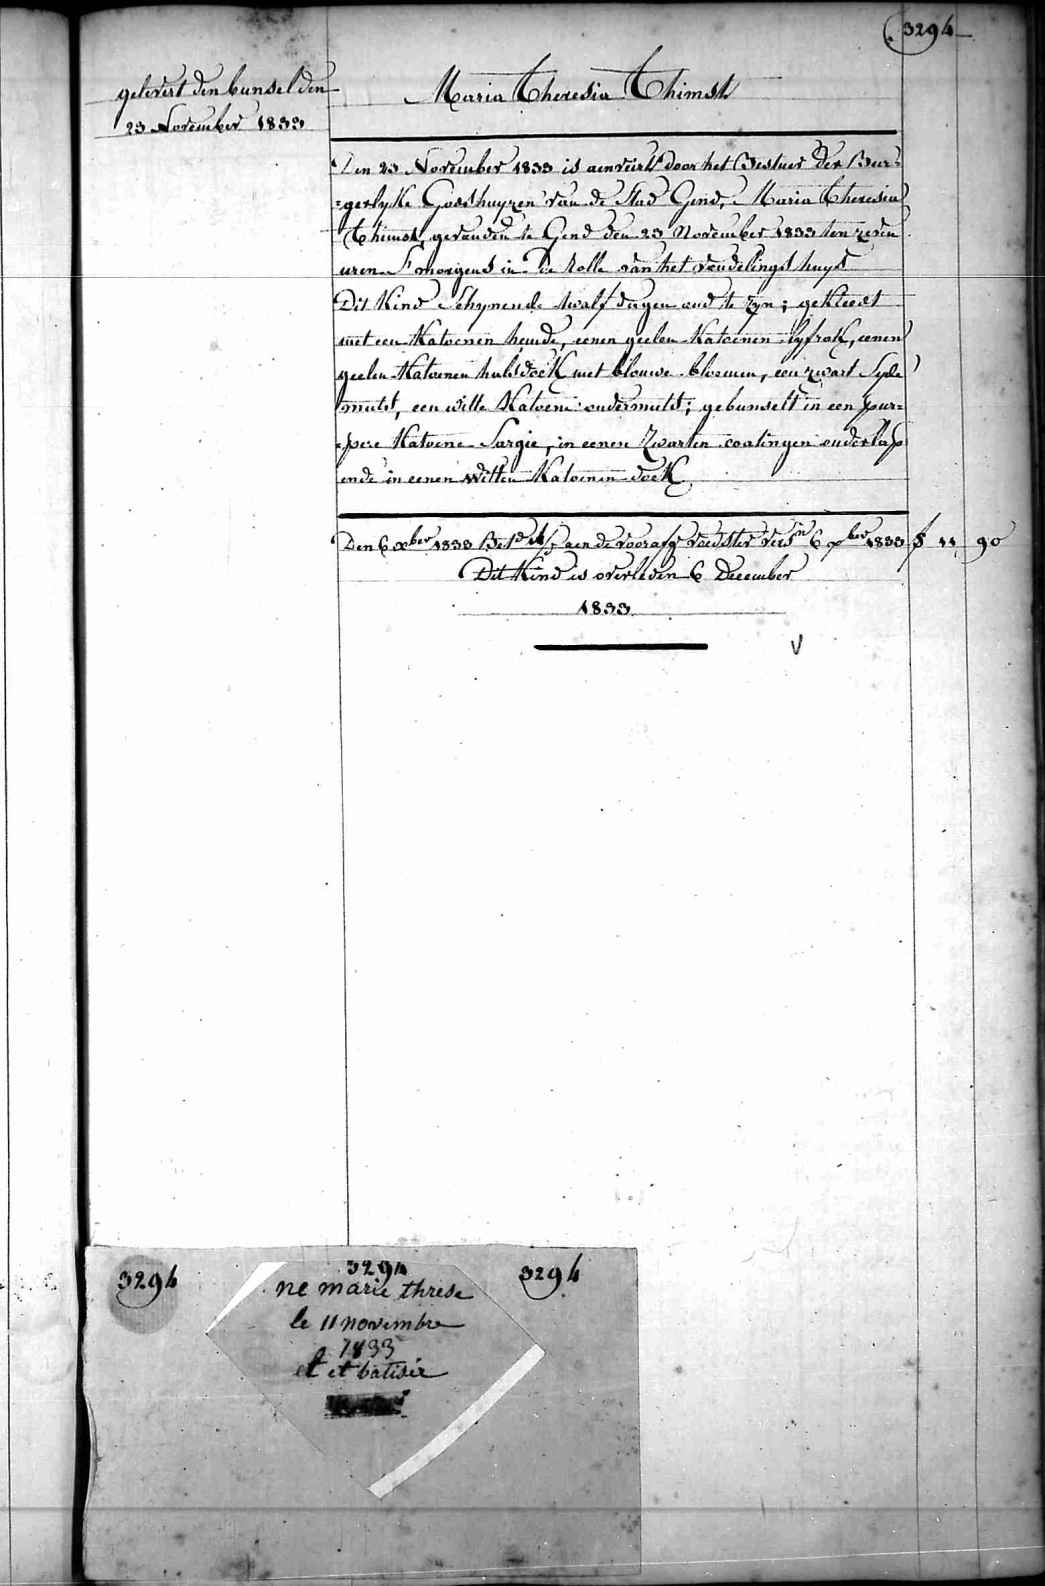 3294
gelevert den bunsel den
23 November 1833
Maria Theresia Thimst
Den 23 November 1833 is aenveird door het Bestuer der Bur=
=gerlyke Godshuyzen van de Stad Gend, Maria Theresia
Thimst, gevonden te Gend den 23 November 1833 ten zeven
uren S'morgens in De Rolle van het vondelings huys
Dit Kind Schynende twalf dagen oud te zyn; gekleed
met een Katoenen hemde, eenen geelen Katoenen lyfrok, eenen
geelen Katoenen halsdoek met blauwe bloemen, een zwart Syde
muts, een witte Katoene ondermuts; gebunselt in een pur=
=pere Katoene Sargie, in eenen Zwarten coatingen onderlap
ende in eenen Witten Katoenen doek
Den 6 xber 1833 aen de voorafg voedster 6 xber 1833 f 11 90
Dit Kind is overleden 6 December
1833
3294
3294
3294
ne marie threse
le 11 novembre
1833
et et batisée